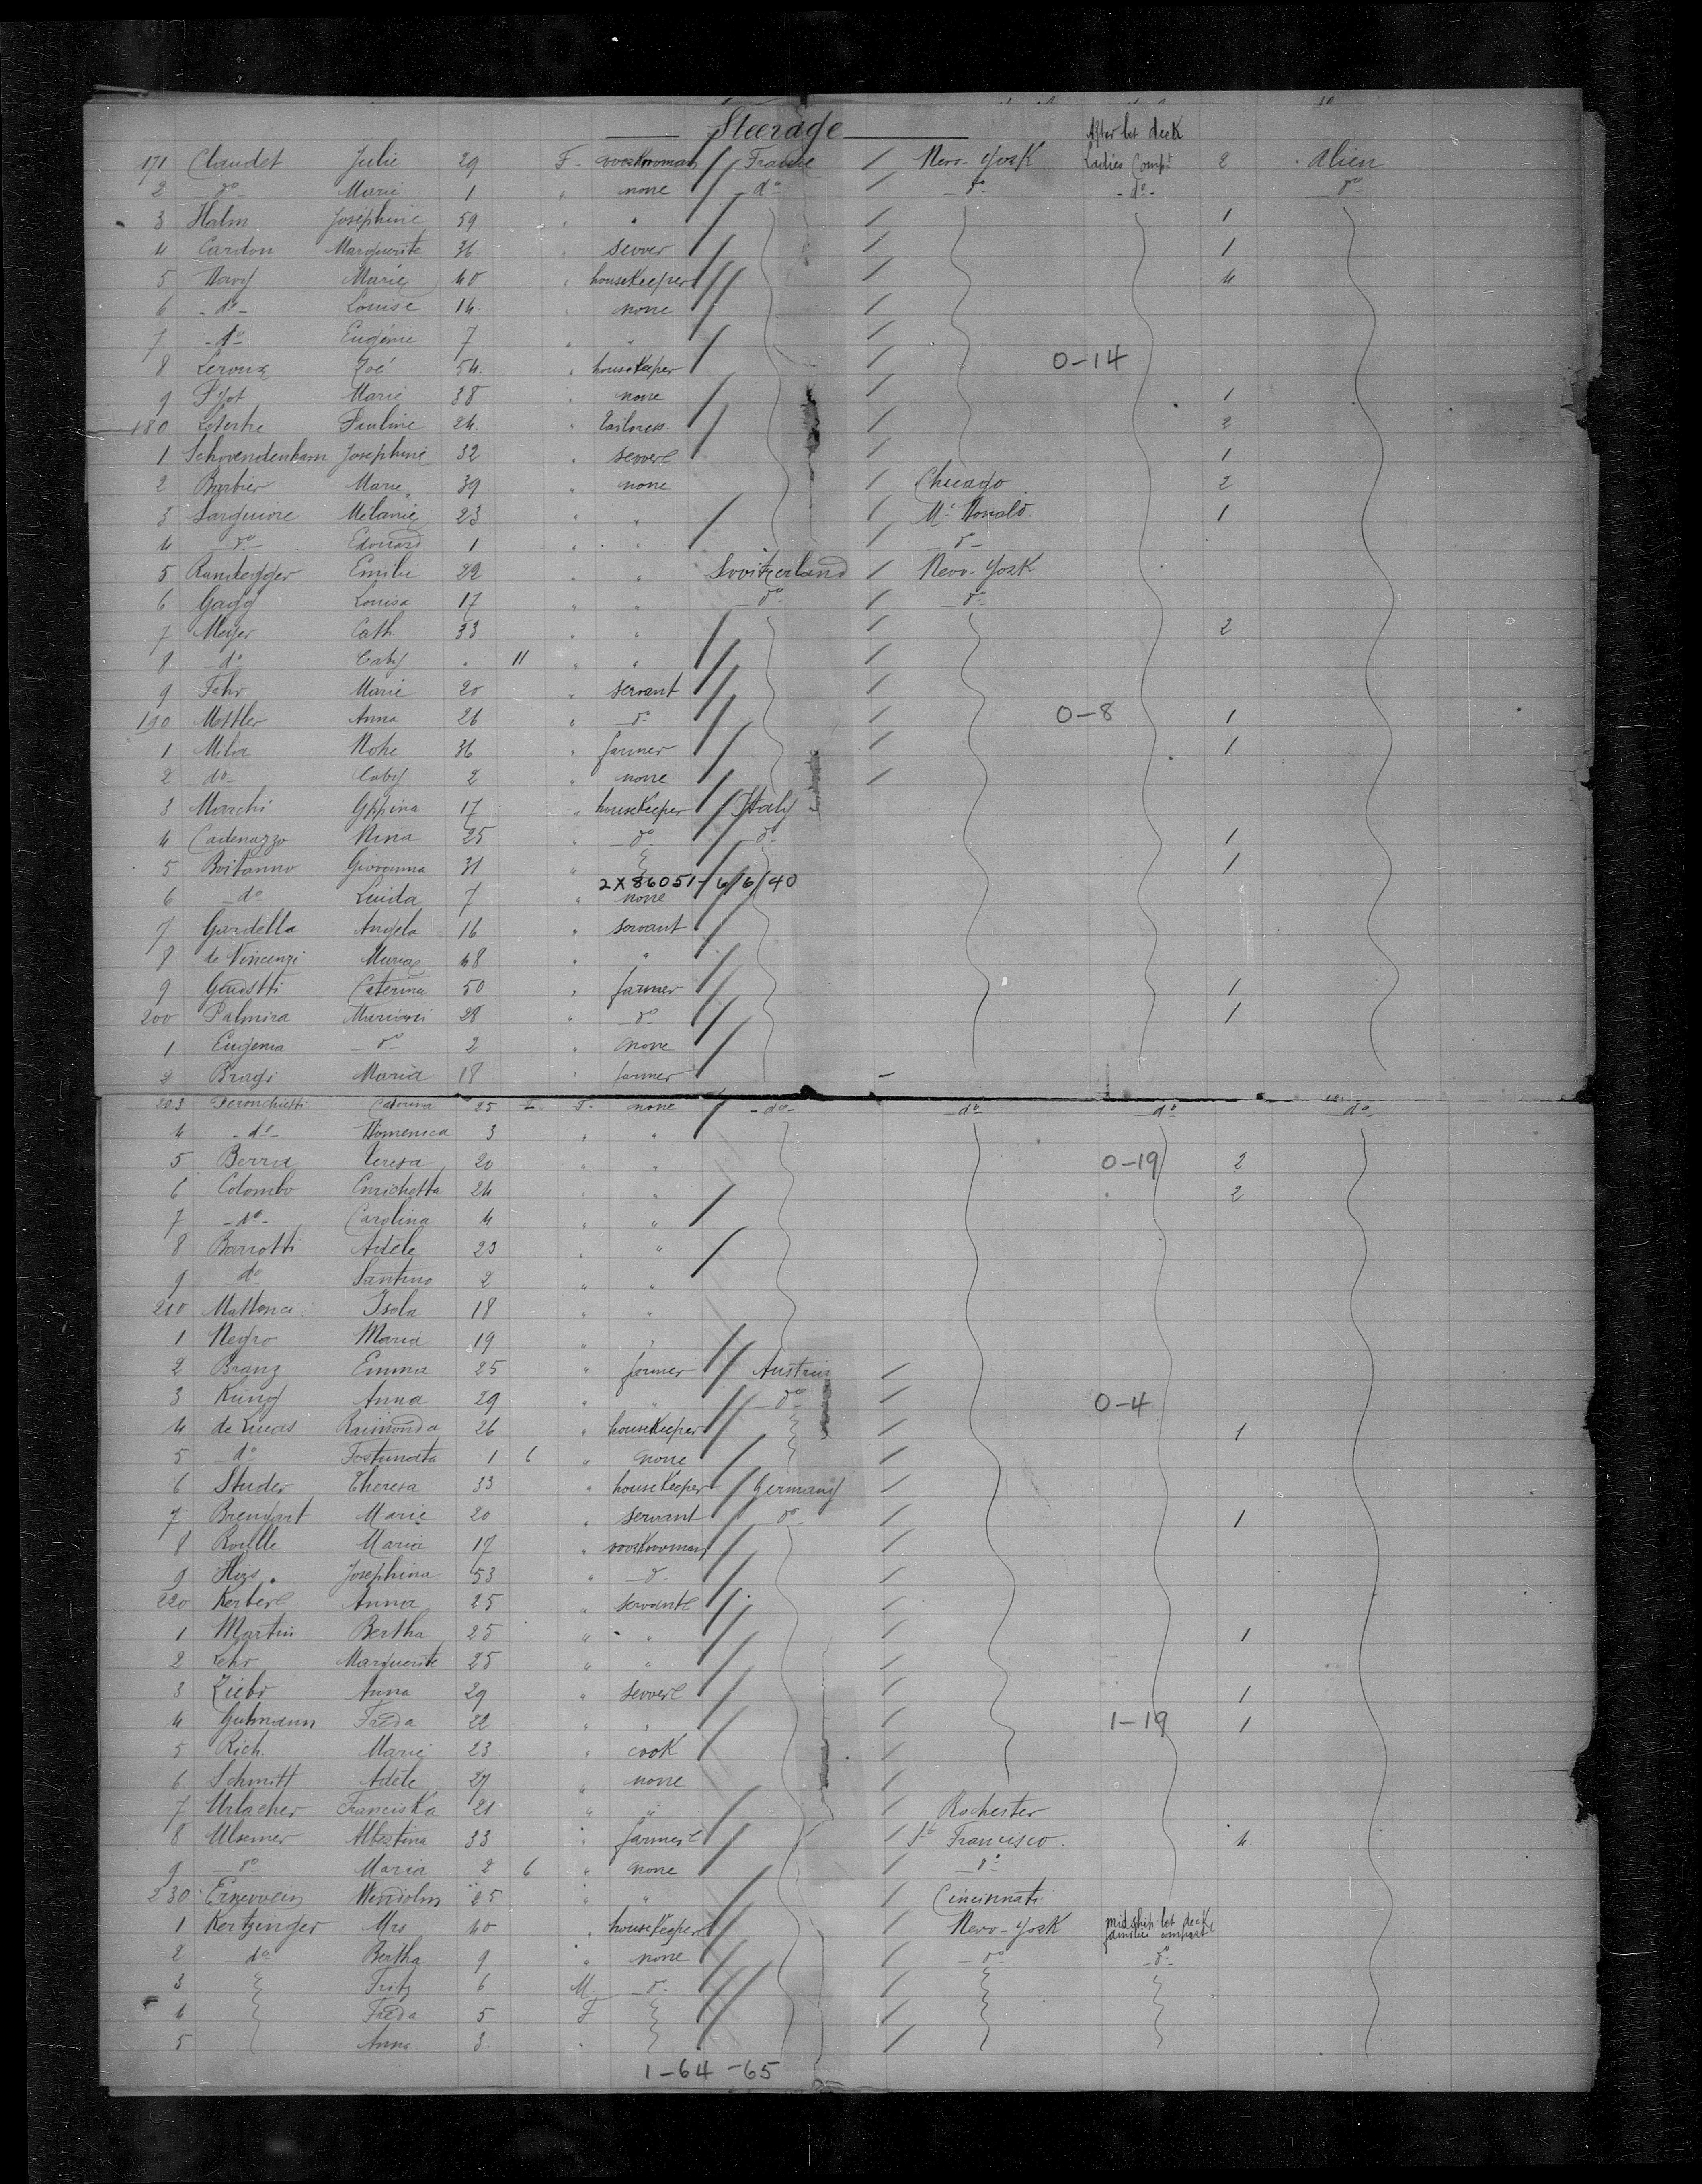 Steerage
After bet deck
171 Claudet Julie 29 F. workwoman France New-York Ladies Compt 2 Alien
2 do Marie 1 " none do do do do
3 Halm Joséphine 59 " " 1
4 Cardon Marguerite 36 " sewer 1
5 Marie 40 " housekeeper 4
6 do Louise 14 " none
7 do Eugénie 7 " "
8 Leroux Zoé 54 " housekeeper 0-14
9 Marie 38 " none 1
180 Pauline 24 " tailoress 2
1 Josephine 32 " sewer 1
2 Barbier Marie 39 " none Chicago 2
3 Mélanie 23 " " Mc Donald 1
4 do Edouard 1 " " do
5 Emilie 22 " " Switzerland New-York
6 Gagg Louisa 17 " " do do
7 Meyer Cath. 33 " " 2
8 do Caty " 11 " "
9 Fehr Marie 20 " servant
190 Mettler Anna 26 " do 0-8 1
1 36 " farmer 1
2 do 2 " none
3 Marchi 17 " housekeeper Italy
4 Cadenazzo Nina 25 " do do 1
5 Boitanno Giovanna 31 " 1
2X86051-6/6/40
6 do 7 " none
7 Gardella Angela 16 " servant
8 de Vincenzi Maria 48 " "
9 Caterina 50 " farmer 1
200 Palmira 28 " do 1
1 Eugenia do 2 " none
2 Maria 18 " farmer
203 Caterina 25 F. none do do do do
4 do Domenica 3 " "
5 Berra Teresa 20 " " 0-19 2
6 Colombo Enrichetta 24 " " 2
7 do Carolina 4 " "
8 Barrotti Adele 23 " "
9 do Santino 2 " "
210 Isola 18 " "
1 Negro Maria 19 " "
2 Branz Emma 25 " farmer Austria
3 Kung Anna 29 " " do 0-4
4 de Lucas Raimonda 26 " housekeeper 1
5 do Fortunata 1 6 " none
6 Studer Theresa 33 " housekeeper Germany
7 Marie 20 " servant do 1
8 Maria 17 " workwoman
9 Josephina 53 " do
220 Anna 25 " servant
1 Martin Bertha 25 " " 1
2 Lehr Marguerite 25 " "
3 Anna 29 " sewer 1
4 Gutmann Frida 22 " " 1-19 1
5 Rich. Marie 23 " cook
6 Schmitt Adèle 27 " none
7 Urlacher Franciska 21 " " Rochester
8 Ulsemer Albertina 33 " farmer St Francisco 4
9 do Maria 2 6 " none do
230 25 " " Cincinnati
1 Kertzinger Mrs 40 " housekeeper New-York midship bet deck families compart
2 do Bertha 9 " none do do
3 Fritz 6 M. do
4 Frida 5 F
5 Anna 3 "
1-64-65